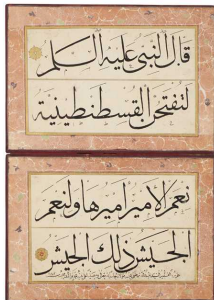 قال النبي عليه السلم
لتفتحن القسطنطينية
نعم الامير اميرها ولنعم
الجيش ذلك الجيش